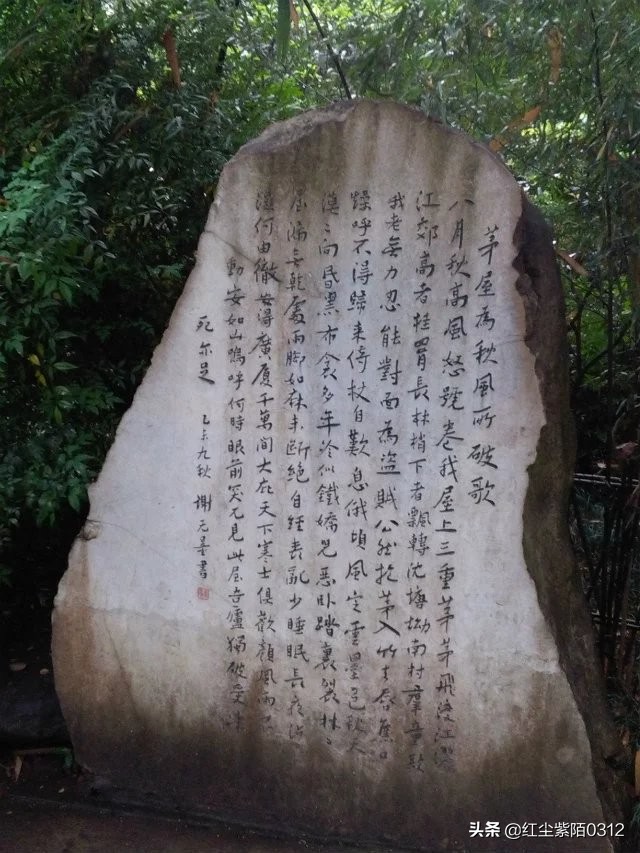 茅屋為秋風所破歌
八月秋高風怒號卷我屋上三重茅茅飛渡江灑
江郊高者挂罥長林梢下者飄轉沈塘坳南村群童欺
我老無力忍能對面為盜賊公然抱茅入竹去唇焦口
燥呼不得歸來倚杖自歎息俄頃風定雲墨色秋天
漠〻向昏黑布衾多年冷似鐵嬌兒惡卧踏裏裂牀〻
屋漏無乾處雨腳如麻未斷絕自經喪亂少睡眠長夜沾
濕何由徹安得廣厦千萬間大庇天下寒士俱歡顏風雨不
動安如山嗚呼何時眼前突兀見此屋吾廬獨破受凍
死亦足 乙未九秋 謝无量書
头条 @红尘紫陌0312